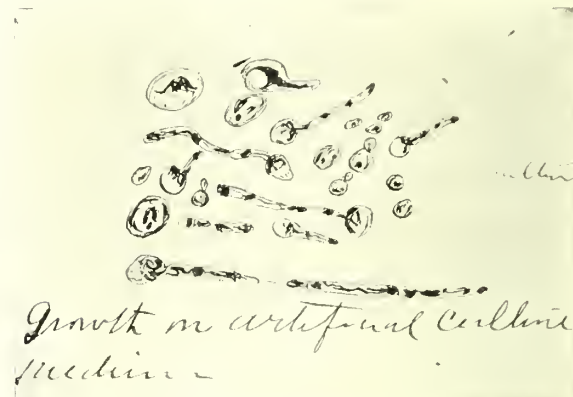 Growth on artificial Culture
medium